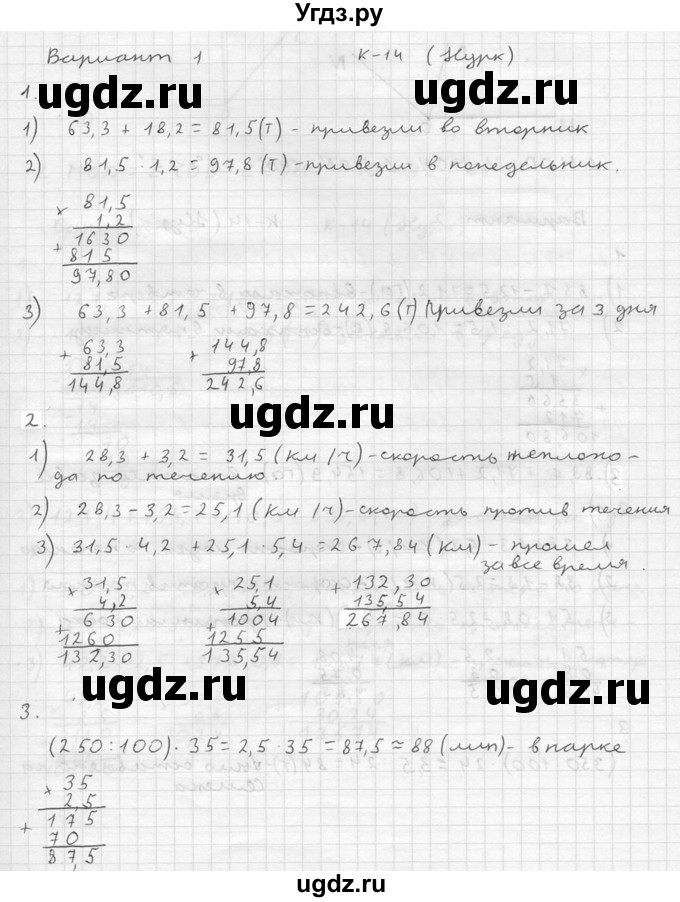 Угдз.ру
Вариант 1 К-14 (Нурк)
ugdz.ru ugdz.ru
1.
1) 63,3 + 18,2 = 81,5 (т) - привезли во вторник
2) 81,5 · 1,2 = 97,8 (т) - привезли в понедельник.
× 81,5
1,2
+ 1630
815
97,80
3) 63,3 + 81,5 + 97,8 = 242,6 (т) Привезли за 3 дня
+ 63,3 + 144,8
81,5 97,8
144,8 242,6
ugdz.ru
2.
1) 28,3 + 3,2 = 31,5 (км/ч) - скорость теплохо-
да по течению.
2) 28,3 - 3,2 = 25,1 (км/ч) - скорость против течения
3) 31,5 · 4,2 + 25,1 · 5,4 = 267,84 (км) - прошел
за все время.
× 31,5 × 25,1 + 132,30
4,2 5,4 135,54
+ 630 + 1004 267,84
1260 1255
132,30 135,54
ugdz.ru ugdz.ru
3.
(250 : 100) · 35 = 2,5 · 35 = 87,5 ≈ 88 (лип) - в парке
× 35
2,5
+ 175
70
87,5
ugdz.ru